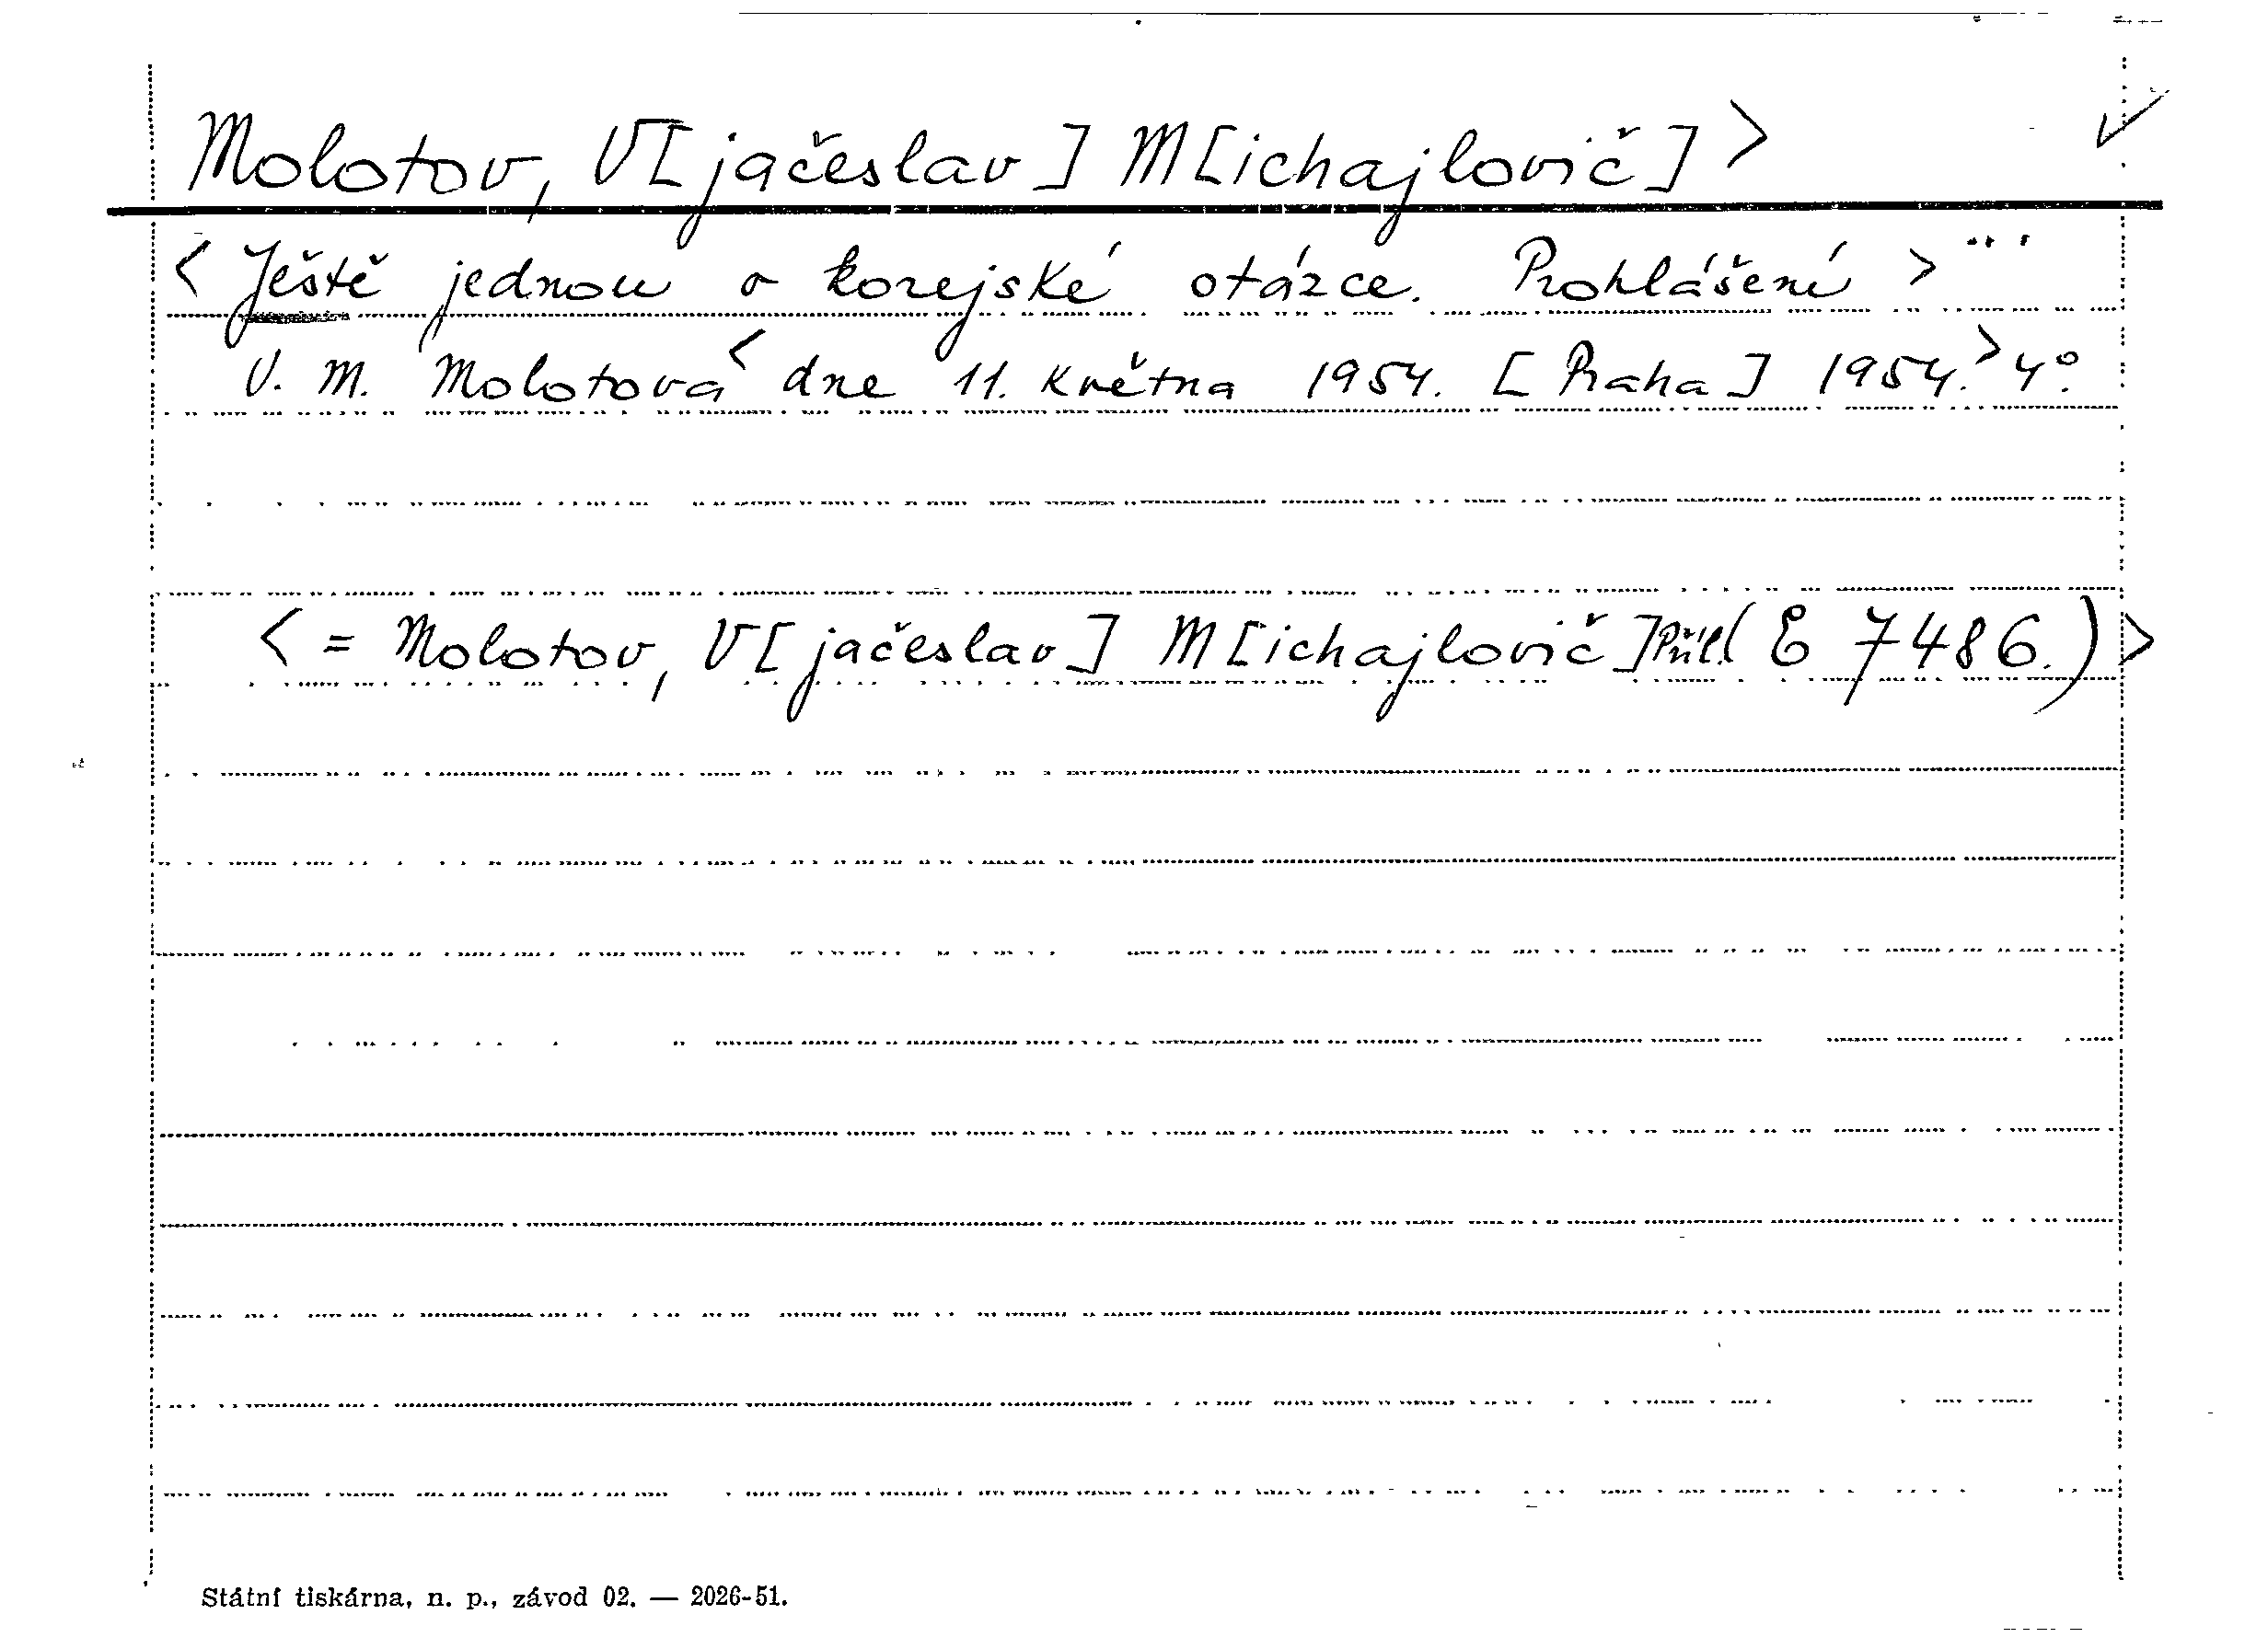 Molotov, V[jačeslav] M[ichajlovič]>
<Ještě jednou o korejské otázce. Prohlášení>
V. M. Molotova< dne 11. května 1954. [Praha] 1954.> 4°.
<= Molotov, V[jačeslav] M[ichajlovič] Příl. (E 7486.)>
Státní tiskárna, n. p., závod 02. — 2026-51.